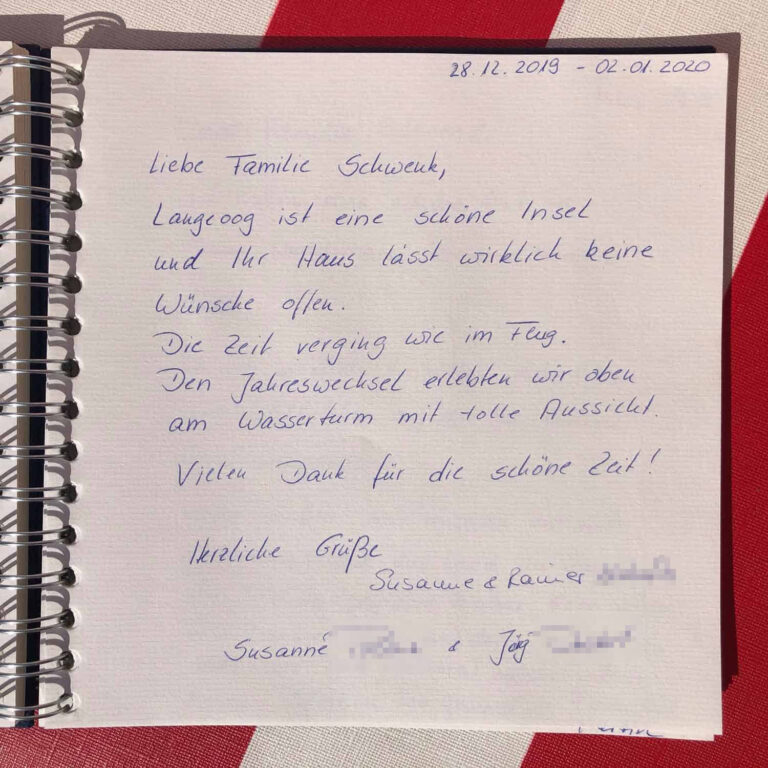 28.12.2019 - 02.01.2020
Liebe Familie Schwenk,
Langeoog ist eine schöne Insel
und Ihr Haus lässt wirklich keine
Wünsche offen.
Die Zeit verging wie im Flug.
Den Jahreswechsel erlebten wir oben
am Wasserturm mit tolle Aussicht.
Vielen Dank für die schöne Zeit!
Herzliche Grüße
Susanne & Rainer
Susanne & Jörg